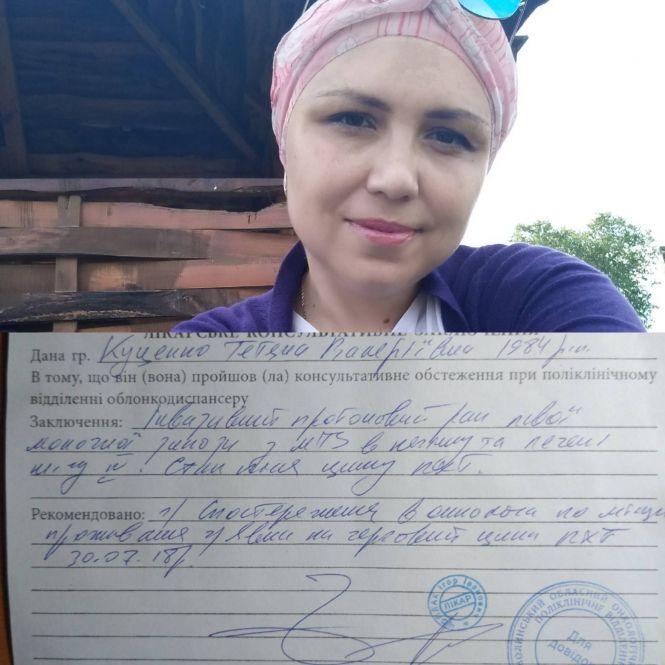 ЛІКАРСЬКЕ КОНСУЛЬТАТИВНЕ
Дана гр. Куценко Тетяна Валеріївна 1984 р.н.
В тому, що він (вона) пройшов (ла) консультативне обстеження при поліклінічному
відділенні облонкодиспансеру
Заключення: Інвазивний протоковий рак лівої
молочної залози з MTS в легені та печені
Стан після циклу ПХТ.
Рекомендовано: 1) Спостереження в онколога по місцю
проживання 2) Явка на черговий цикл ПХТ
30.07.18р.
Ігор Іванович
ЛІКАР
ВОЛИНСЬКИЙ ОБЛАСНИЙ
ПОЛІКЛІНІЧНЕ ВІДДІЛЕННЯ
Для
довідок